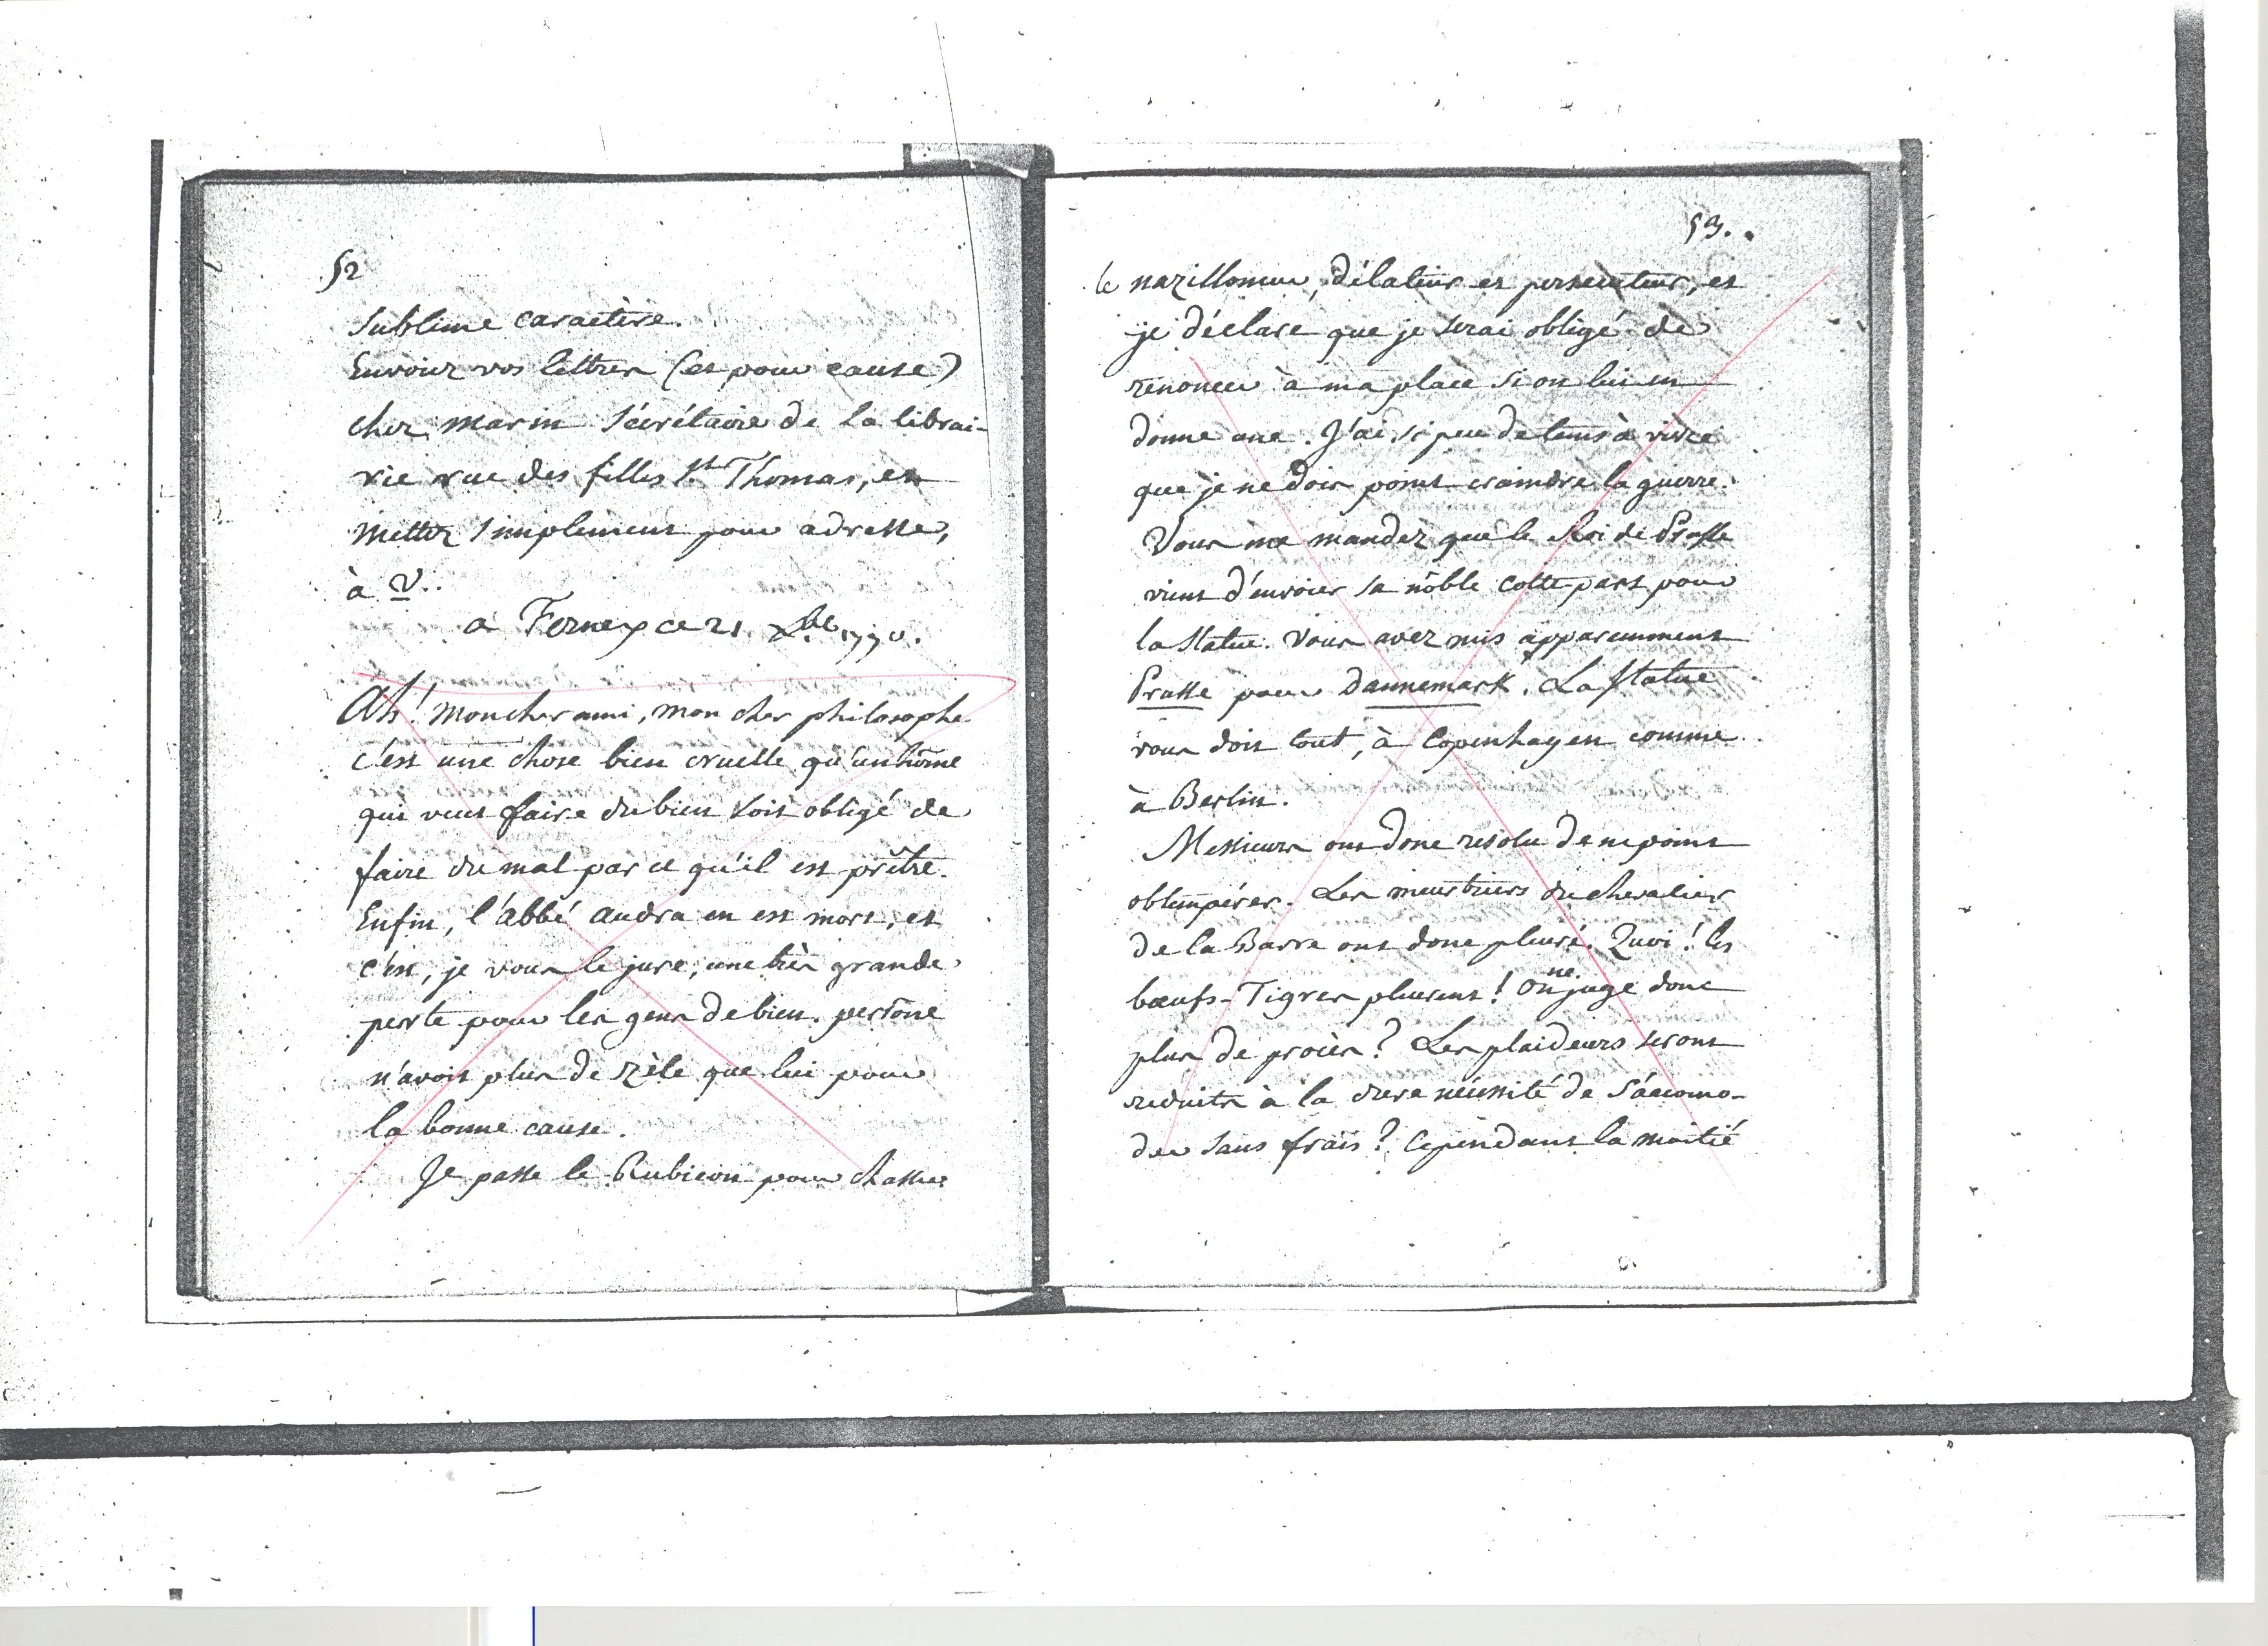 52
sublime caractère.
Envoiez vos lettres (et pour cause)
chez Marin Sécrétaire de la librai-
rie rue des filles St Thomas, et
mettez simplement pour adresse,
à V..
à Ferney ce 21 Xbe 1770.
Ah! mon cher ami, mon cher philosophe
c'est une chose bien cruelle qu'un hôme
qui veut faire du bien soit obligé de
faire du mal par ce qu'il est prêtre.
Enfin, l'abbé Audra en est mort, et
c'est, je vous le jure, une très grande
perte pour les gens de bien. persone
n'avoit plus de zèle que lui pour
la bonne cause.
Je passe le Rubicon pour chasser
53.
le nazillonneur, délateur et persecuteur, et
je déclare que je serai obligé de
renoncer à ma place si on lui en
donne une. J'ai si peu de tems à vivre
que je ne dois point craindre la guerre.
Vous me mandez que le Roi de Prusse
vient d'envoier sa noble cotte part pour
la statue. Vous avez mis apparemment
Prusse pour Dannemark. La statue
vous doit tout, à Copenhagen comme
à Berlin.
Messieurs ont donc resolu de ne point
obtempérer. Les meurtriers du chevalier
de la Barre ont donc pleuré. Quoi! les
bœufs-Tigres pleurent! On ne juge donc
plus de procès? Les plaideurs seront
reduits à la dure nécessité de s'accomo-
der sans frais? Cependant la moitié